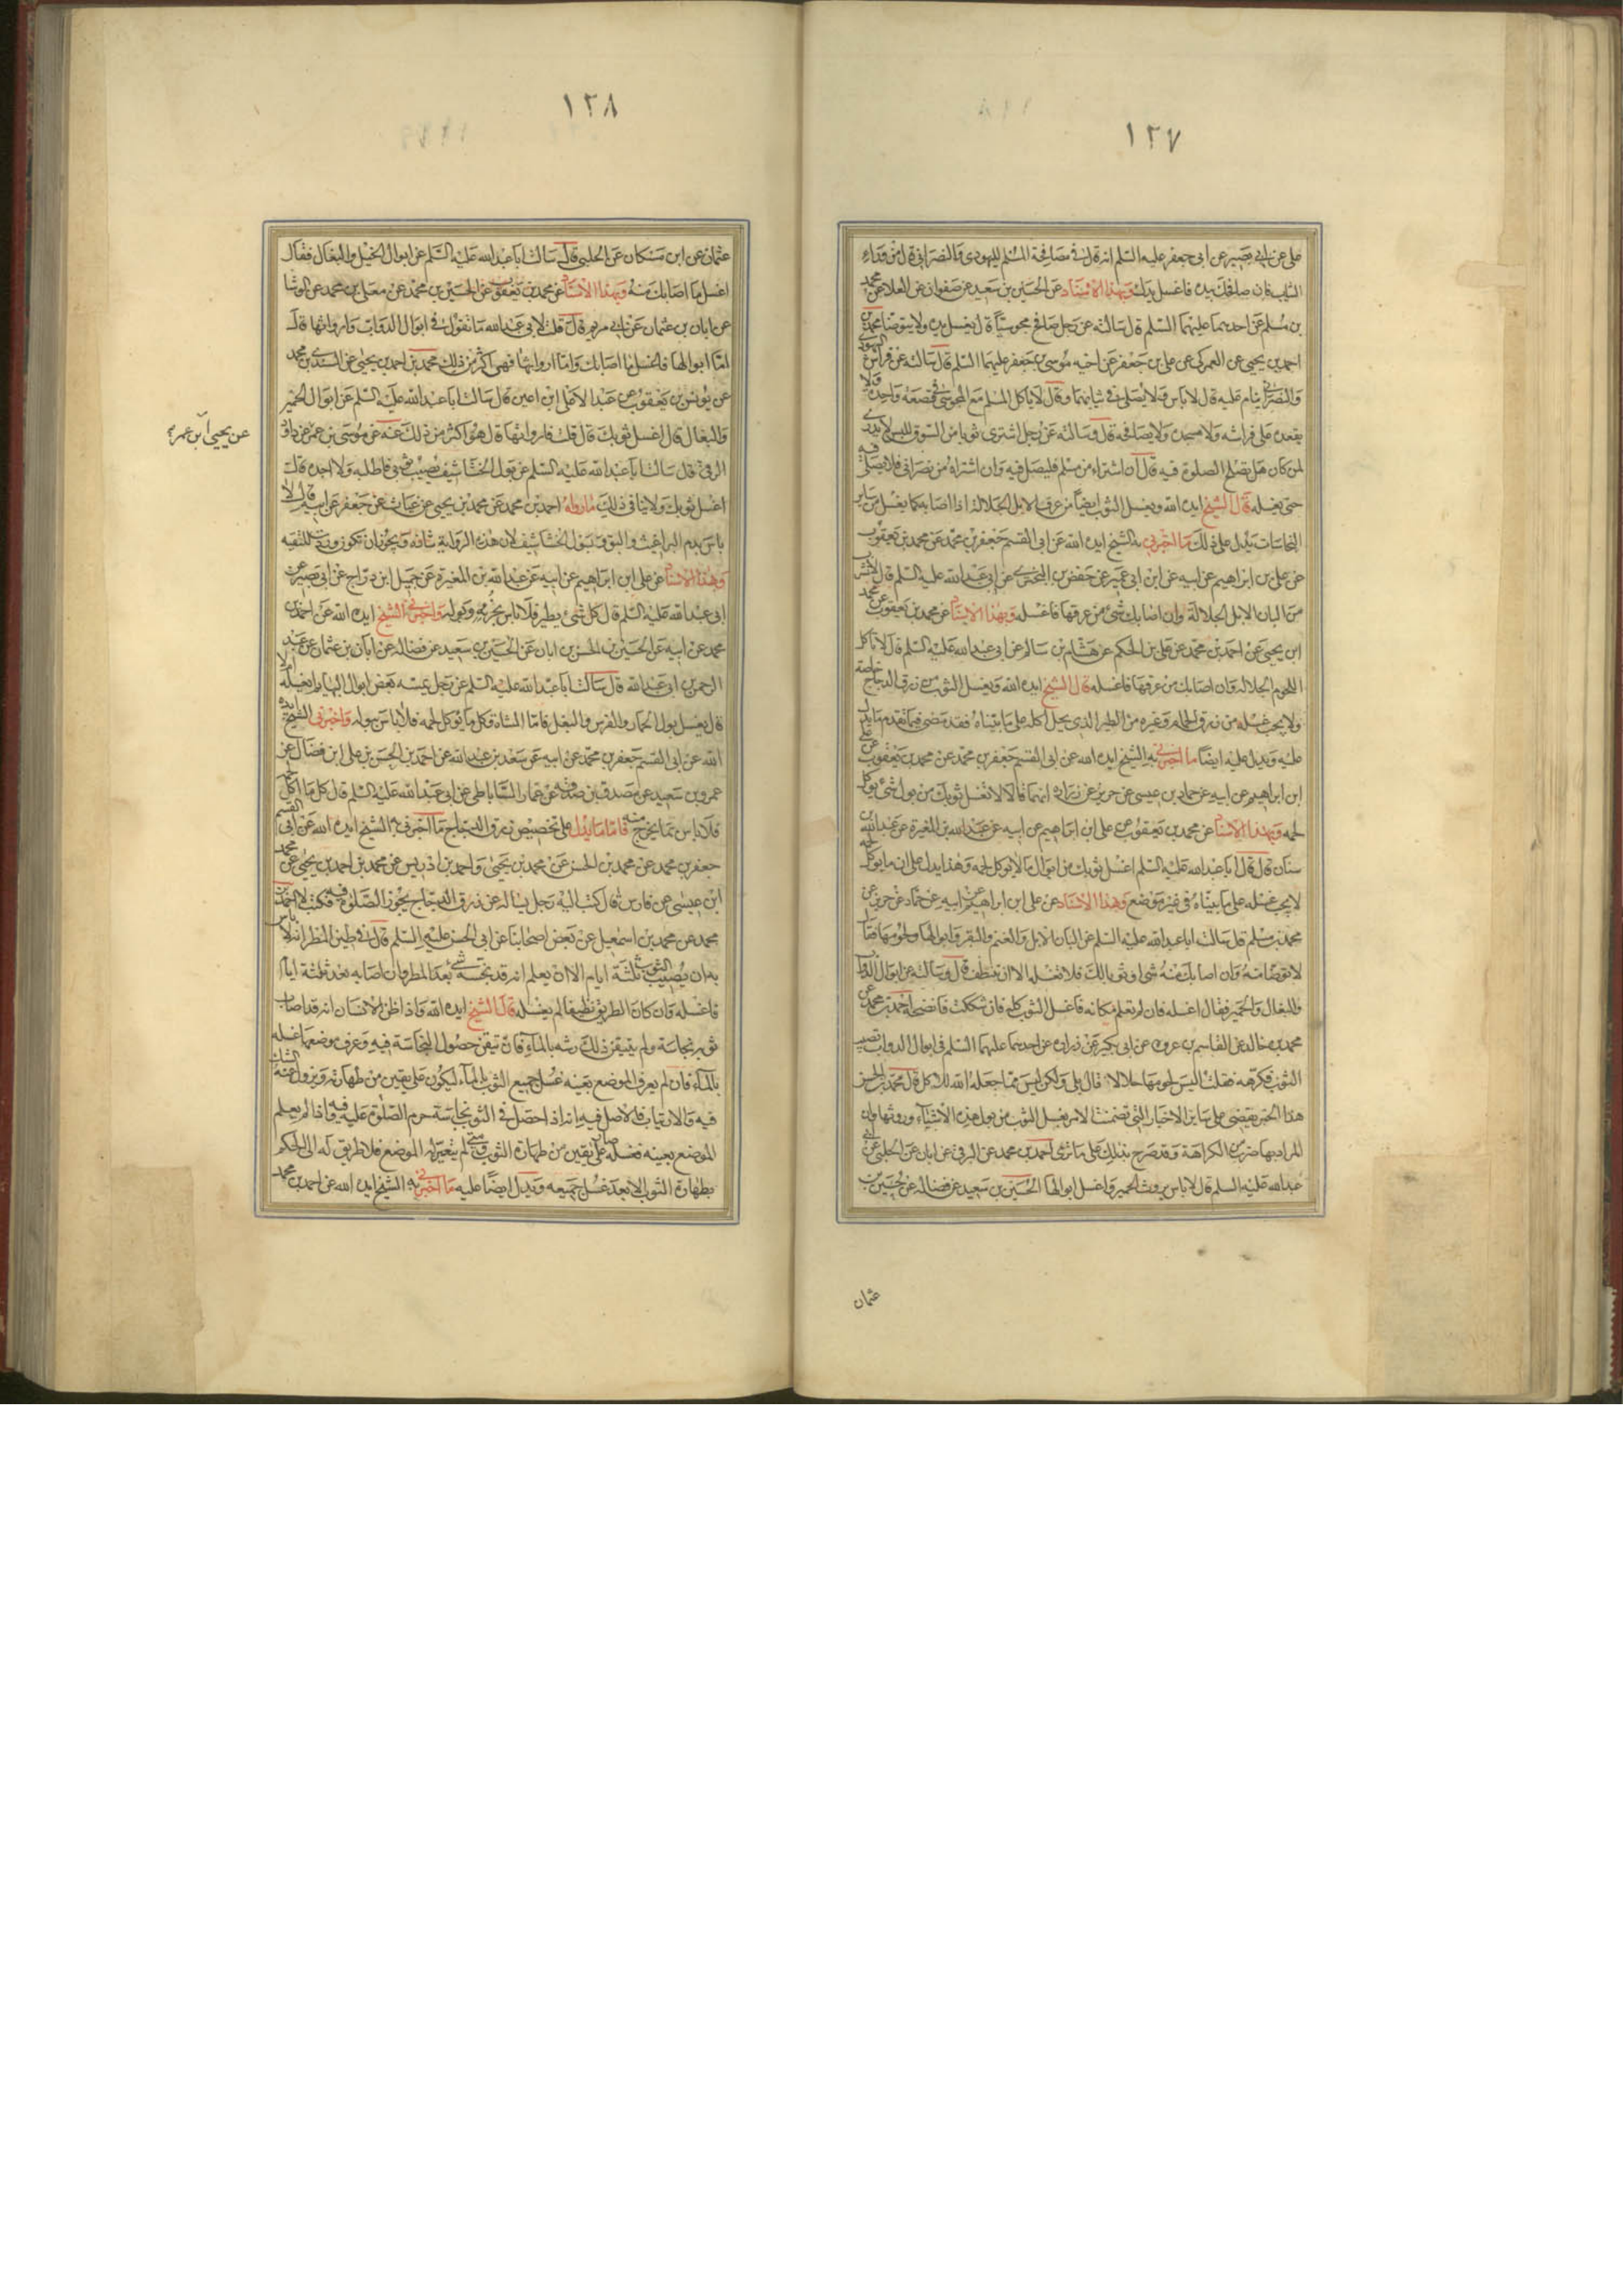 ١٢٧
على عن ابى بصير عن ابى جعفر عليه السلم انه قال فى مصافحة المسلم لليهودى والنصرانى قال من وراء
الثياب فان صافحك بيده فاغسل يدك وبهذا الاسناد عن الحسين بن سعيد عن صفوان عن العلا عن محمد
بن مسلم عن احدهما عليهما السلم قال سالته عن رجل صافح مجوسيا قال يغسل يده ولا يتوضا محمد بن
احمد بن يحيى عن العمركى عن على بن جعفر عن اخيه موسى بن جعفر عليهما السلم قال سالته عن فراش اليهودى
والنصرانى ينام عليه قال لا باس ولا يصلى فى ثيابهما وقال لا ياكل المسلم مع المجوسى فى قصعة واحدة ولا
يقعده على فراشه ولا مسجده ولا يصافحه قال وسالته عن رجل اشترى ثوبا من السوق للبس لا يدرى
لمن كان هل يصلح الصلوة فيه قال ان اشتراه من مسلم فليصل فيه وان اشتراه من نصرانى فلا يصلى فيه
حتى يغسله قال الشيخ ايده الله ويغسل الثوب ايضا من عرق الابل الجلالة اذا اصابه كما يغسل من ساير
النجاسات يدل على ذلك ما اخبرنى به الشيخ ايده الله عن ابى القسم جعفر بن محمد عن محمد بن يعقوب
عن على بن ابراهيم عن ابيه عن ابن ابى عمير عن حفص بن البخترى عن ابى عبد الله عليه السلم قال لا تشرب
من البان الابل الجلالة وان اصابك شئ من عرقها فاغسله وبهذا الاسناد عن محمد بن يعقوب عن محمد
ابن يحيى عن احمد بن محمد عن على بن الحكم عن هشام بن سالم عن ابى عبد الله عليه السلم قال لا تاكل
اللحوم الجلاله وان اصابك من عرقها فاغسله قال الشيخ ايده الله ويغسل الثوب من ذرق الدجاج خاصة
ولا يجب غسله من ذرق الحمام وغيره من الطير الذى يحل اكله على ما بيناه فقد مضى فيما تقدم ما يدل
عليه ويدل عليه ايضا ما اخبرنى به الشيخ ايده الله عن ابى القسم جعفر بن محمد عن محمد بن يعقوب عن على
ابن ابراهيم عن ابيه عن حماد بن عيسى عن حريز عن زرارة انهما قالا لا تغسل ثوبك من بول شئ يوكل
لحمه وبهذا الاسناد عن محمد بن يعقوب عن على ابن ابراهيم عن ابيه عن عبد الله بن المغيرة عن عبد الله بن
سنان قال قال ابا عبد الله عليه السلم اغسل ثوبك من ابوال ما لا يوكل لحمه وهذا يدل على ان ما يوكل لحمه
لا يجب غسله على ما بيناه فى غير موضع وبهذا الاسناد عن على ابن ابراهيم عن ابيه عن حماد عن حريز عن
محمد بن مسلم قال سالت ابا عبد الله عليه السلم عن البان الابل والغنم والبقر وابوالها ولحومها فقال
لا توضا منه وان اصابك منه شئ او ثوبا لك فلا تغسله الا ان تنظف قال وسالته عن ابوال الدواب
والبغال والحمير فقال اغسله فان لم تعلم مكانه فاغسل الثوب كله فان شككت فانضحه احمد بن محمد عن
محمد بن خالد عن القاسم بن عروة عن ابن بكير عن زرارة عن احدهما عليهما السلم فى ابوال الدواب تصيب
الثوب فكرهه فقلت اليس لحومها حلالا قال بلى ولكن ليس مما جعله الله للاكل قال محمد بن الحسن
هذا الخبر يقضى على ساير الاخبار التى تضمنت الامر بغسل الثوب من بول هذه الاشياء وروثها وان
المراد بها ضرب من الكراهة وقد صرح بذلك على ما ترى احمد بن محمد عن البرقى عن ابان عن الحلبى عن ابى
عبد الله عليه السلم قال لا باس بروث الحمير واغسل ابوالها الحسين بن سعيد عن فضالة عن حسين بن
عثمان
١٢٨
عثمان عن ابن مسكان عن الحلبى قال سالت ابا عبد الله عليه السلم عن ابوال الخيل والبغال فقال
اغسل ما اصابك منه وبهذا الاسناد عن محمد بن يعقوب عن الحسين بن محمد عن معلى بن محمد عن الوشا
عن ابان بن عثمان عن ابى مريم قال قلت لابى عبد الله ما تقول فى ابوال الدواب وارواثها قال
اما ابوالها فاغسل ما اصابك واما ارواثها فهى اكثر من ذلك محمد بن احمد بن يحيى عن السندى بن محمد
عن يونس بن يعقوب عن عبد الاعلى ابن اعين قال سالت ابا عبد الله عليه السلم عن ابوال الحمير
والبغال قال اغسل ثوبك قال قلت فارواثها قال هو اكثر من ذلك عنه عن موسى بن عمر عن داود
الرقى قال سالت ابا عبد الله عليه السلم عن بول الخشاشيف يصيب ثوبى فاطلبه ولا اجده قال
اغسل ثوبك ولا ينافى ذلك ما رواه احمد بن محمد عن محمد بن يحيى عن غياث عن جعفر عن ابيه قال لا
باس بدم البراغيث والبق وبول الخشاشيف لان هذه الرواية شاذه ويجوز ان تكون وردت للتقيه
وبهذا الاسناد عن على ابن ابراهيم عن ابيه عن عبد الله بن المغيرة عن جميل ابن دراج عن ابى بصير عن
ابى عبد الله عليه السلم قال كل شئ يطير فلا باس بخرئه وبوله واخبرنى الشيخ ايده الله عن احمد بن
محمد عن ابيه عن الحسين بن الحسن بن ابان عن الحسين بن سعيد عن فضالة عن ابان بن عثمان عن عبد
الرحمن بن ابى عبد الله قال سالت ابا عبد الله عليه السلم عن رجل يمسه بعض ابوال البهايم ايغسله ام لا
قال يغسل بول الحمار والفرس والبغل فاما الشاة وكل ما يوكل لحمه فلا باس ببوله واخبرنى الشيخ ايده
الله عن ابى القسم جعفر بن محمد عن ابيه عن سعد بن عبد الله عن احمد بن الحسن بن على ابن فضال عن
عمرو بن سعيد عن مصدق بن صدقة عن عمار الساباطى عن ابى عبد الله عليه السلم قال كل ما اكل لحمه
فلا باس بما يخرج منه فاما ما يدل على تخصيص ذرق الدجاج ما اخبرنى به الشيخ ايده الله عن ابى القسم
جعفر بن محمد عن محمد بن الحسن عن محمد بن يحيى واحمد بن ادريس عن محمد بن احمد بن يحيى عن محمد
ابن عيسى عن فارس قال كتب اليه رجل يساله عن ذرق الدجاج يجوز الصلوة فيه فكتب لا احمد بن
محمد عن محمد بن اسمعيل عن بعض اصحابنا عن ابى الحسن عليه السلم قال فى طين المطر انه لا باس
به ان يصيب الثوب ثلثة ايام الا ان يعلم انه قد نجسه شئ بعد المطر وان اصابه بعد ثلثة ايام
فاغسله وان كان الطريق نظيفا لم يغسله قال الشيخ ايده الله واذا ظن الانسان انه قد اصاب
ثوبه نجاسة ولم يتيقن ذلك رشه بالماء فان تيقن حصول النجاسة فيه وعرف موضعها غسله
بالماء فان لم يعرف الموضع بعينه غسل جميع الثوب بالماء ليكون على يقين من طهارته ويزول عنه الشك
فيه والارتياب فالاصل فيه انه اذا حصل فى الثوب نجاسة حرم الصلوة عليه فيه واذا لم يعلم
الموضع بعينه فغسله صار على يقين من طهارة الثوب ومتى لم يتعين له الموضع فلا طريق له الى الحكم
بطهارة الثوب الا بعد غسل جميعه ويدل ايضا عليه ما اخبرنى به الشيخ ايده الله عن احمد بن محمد
عن يحيى ابن عمر